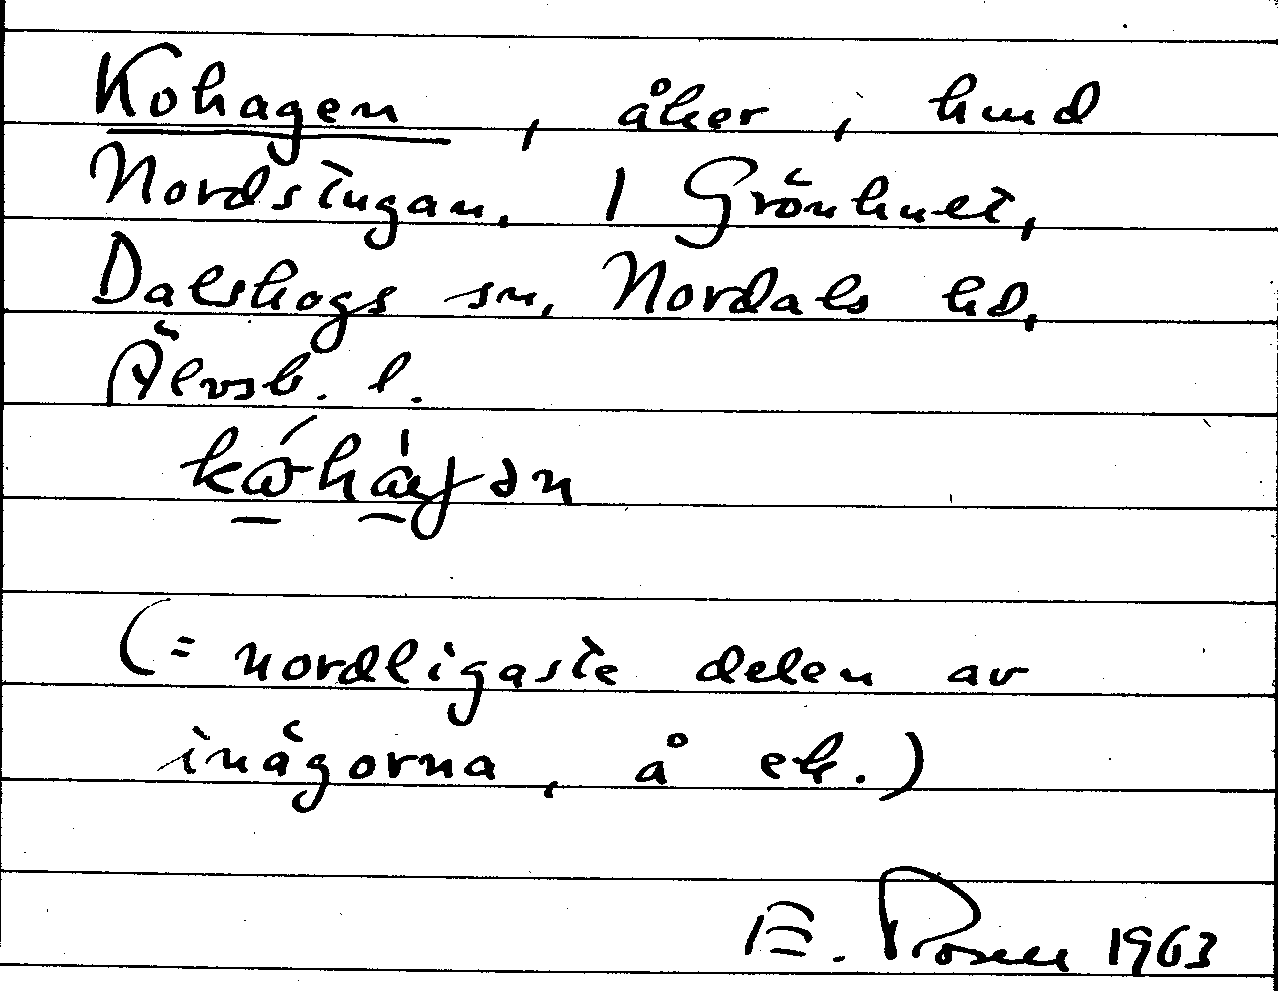 Kohagen, åker, hmd
Nordstugan, 1 Grönhult,
Dalskogs sn, Nordals hd,
Älvsb. l.
(= nordligaste delen av
inägorna, å ek.)
E. Rosell 1963